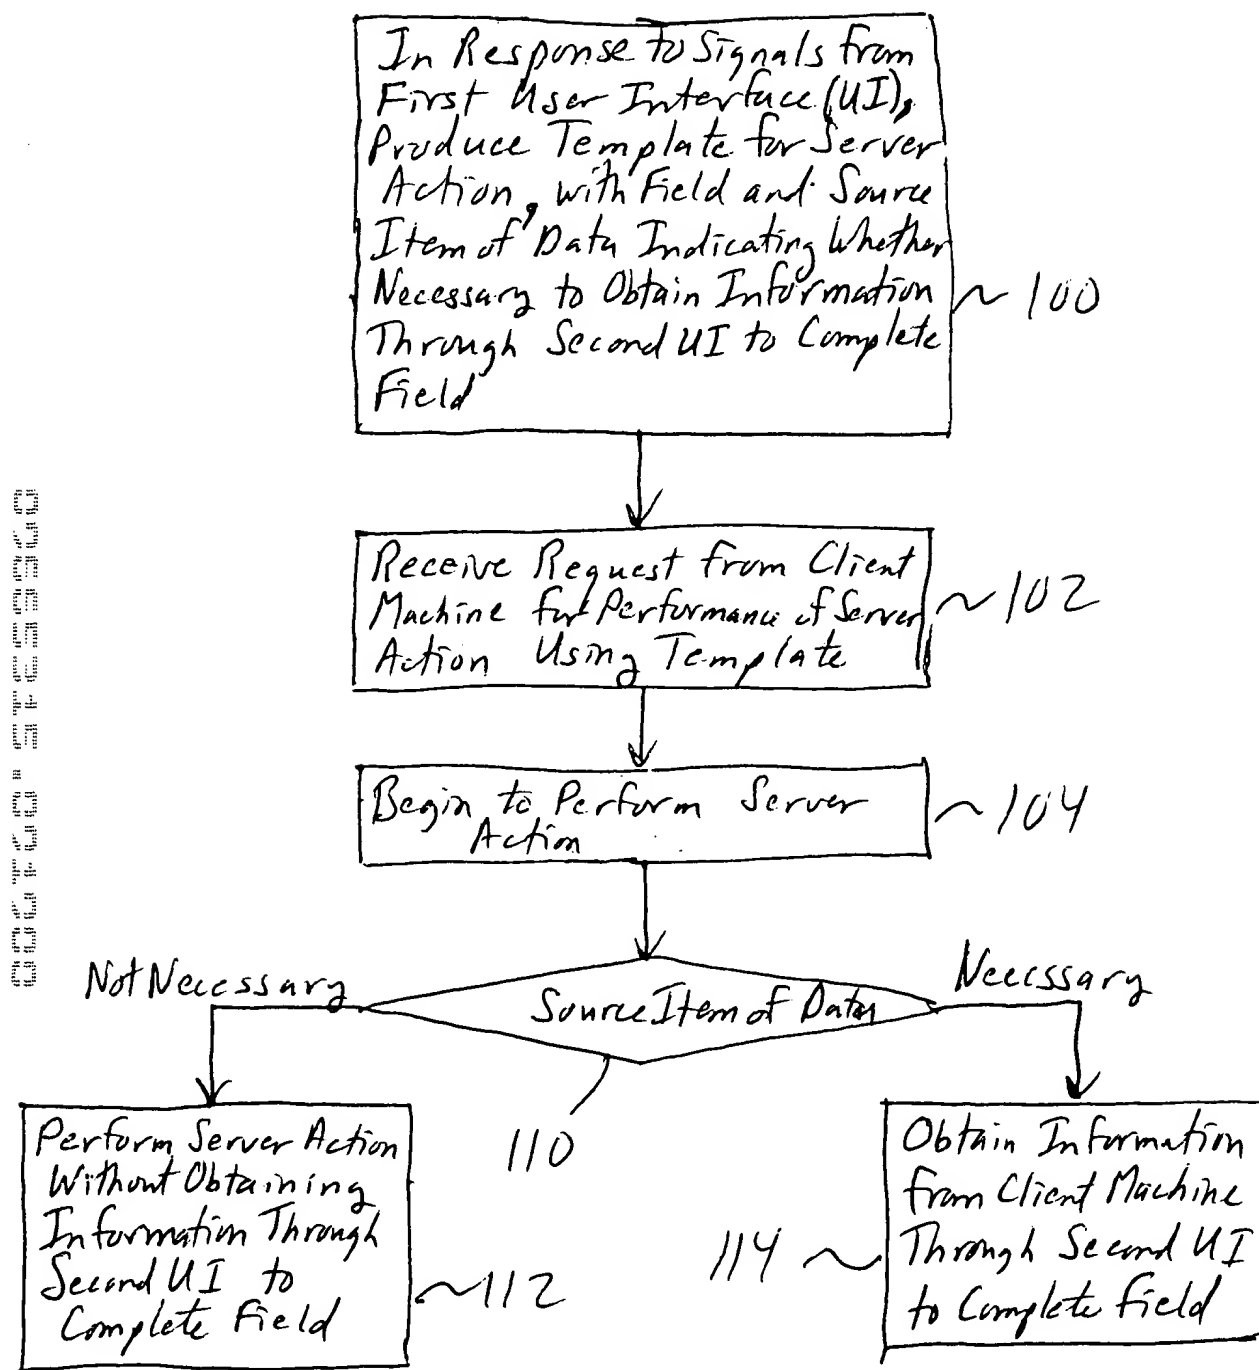 In Response to Signals from
First User Interface (UI),
Produce Template for Server
Action, with Field and Source
Item of Data Indicating Whether
Necessary to Obtain Information
Through Second UI to Complete
Field
~ 100
Receive Request from Client
Machine for Performance of Server
Action Using Template
~ 102
Begin to Perform Server
Action
~ 104
Not Necessary
Source Item of Data
Necessary
110
Perform Server Action
Without Obtaining
Information Through
Second UI to
Complete Field
~112
Obtain Information
from Client Machine
Through Second UI
to Complete Field
114 ~